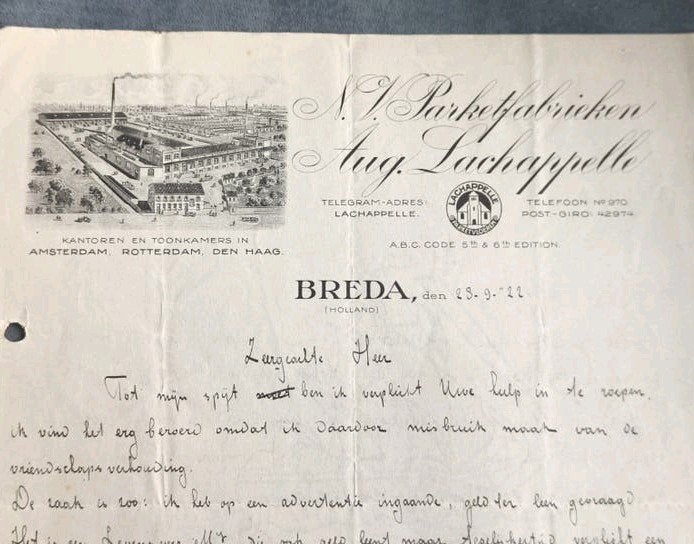 N.V. Parketfabrieken
Aug. Lachappelle
TELEGRAM-ADRES:
LACHAPPELLE.
LACHAPPELLE
TELEFOON No 970
POST-GIRO: 42974
KANTOREN EN TOONKAMERS IN
AMSTERDAM, ROTTERDAM, DEN HAAG.
A.B.C. CODE 5th & 6th EDITION.
BREDA, den 23-9-'22
(HOLLAND)
Zeergeachte Heer
Tot mijn spijt ben ik verplicht Uwe hulp in te roepen.
ik vind het erg beroerd omdat ik daardoor misbruik maak van de
vriendschapsverhouding.
De zaak is zoo: ik heb op een advertentie ingaande, geld ter leen gevraagd
Het is een geld leent maar tegelijkertijd verplicht een